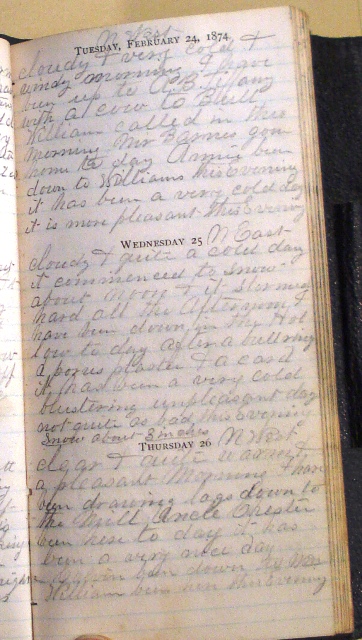 N West
TUESDAY, FEBRUARY 24, 1874
cloudy & very cold &
windy morning I have
been up to A. B.
with a cow to Bull
William called in this
morning Mr Barnes gon
hom to day Annie been
down to Williams this Evening
it has been a very cold day
it is more pleasant this Evening
WEDNESDAY 25 N East
cloudy & quit a cold day
it commenced to snow
about noon & it stormed
hard all the Afternoon I
have been down in the Hol
low to day after a bull ring
a porus plaster & a card
it has been a very cold
blustering unpleasant day
not quite as bad this Evening
Snow about 3 inches
THURSDAY 26 N West
clear & quite warm &
a pleasant Morning I have
been drawing logs down to
the Mill, Uncle Chester
been here to day it has
been a very nice day
been down
William been here this Evening